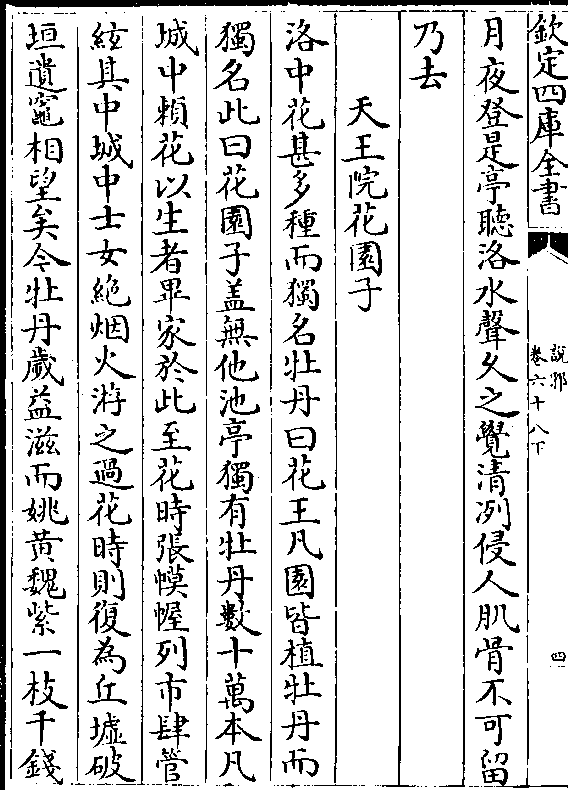 欽定四庫全書
說郛
卷六十八下
四
月夜登是亭聽洛水聲久之覺清冽侵人肌骨不可留
乃去
天王院花園子
洛中花甚多種而獨名牡丹曰花王凡園皆植牡丹而
獨名此曰花園子盖無他池亭獨有牡丹數十萬本凡
城中賴花以生者畢家於此至花時張幙幄列市肆管
絃其中城中士女絶烟火游之過花時則復為丘墟破
垣遺竈相望矣今牡丹歲益滋而姚黄魏紫一枝千錢